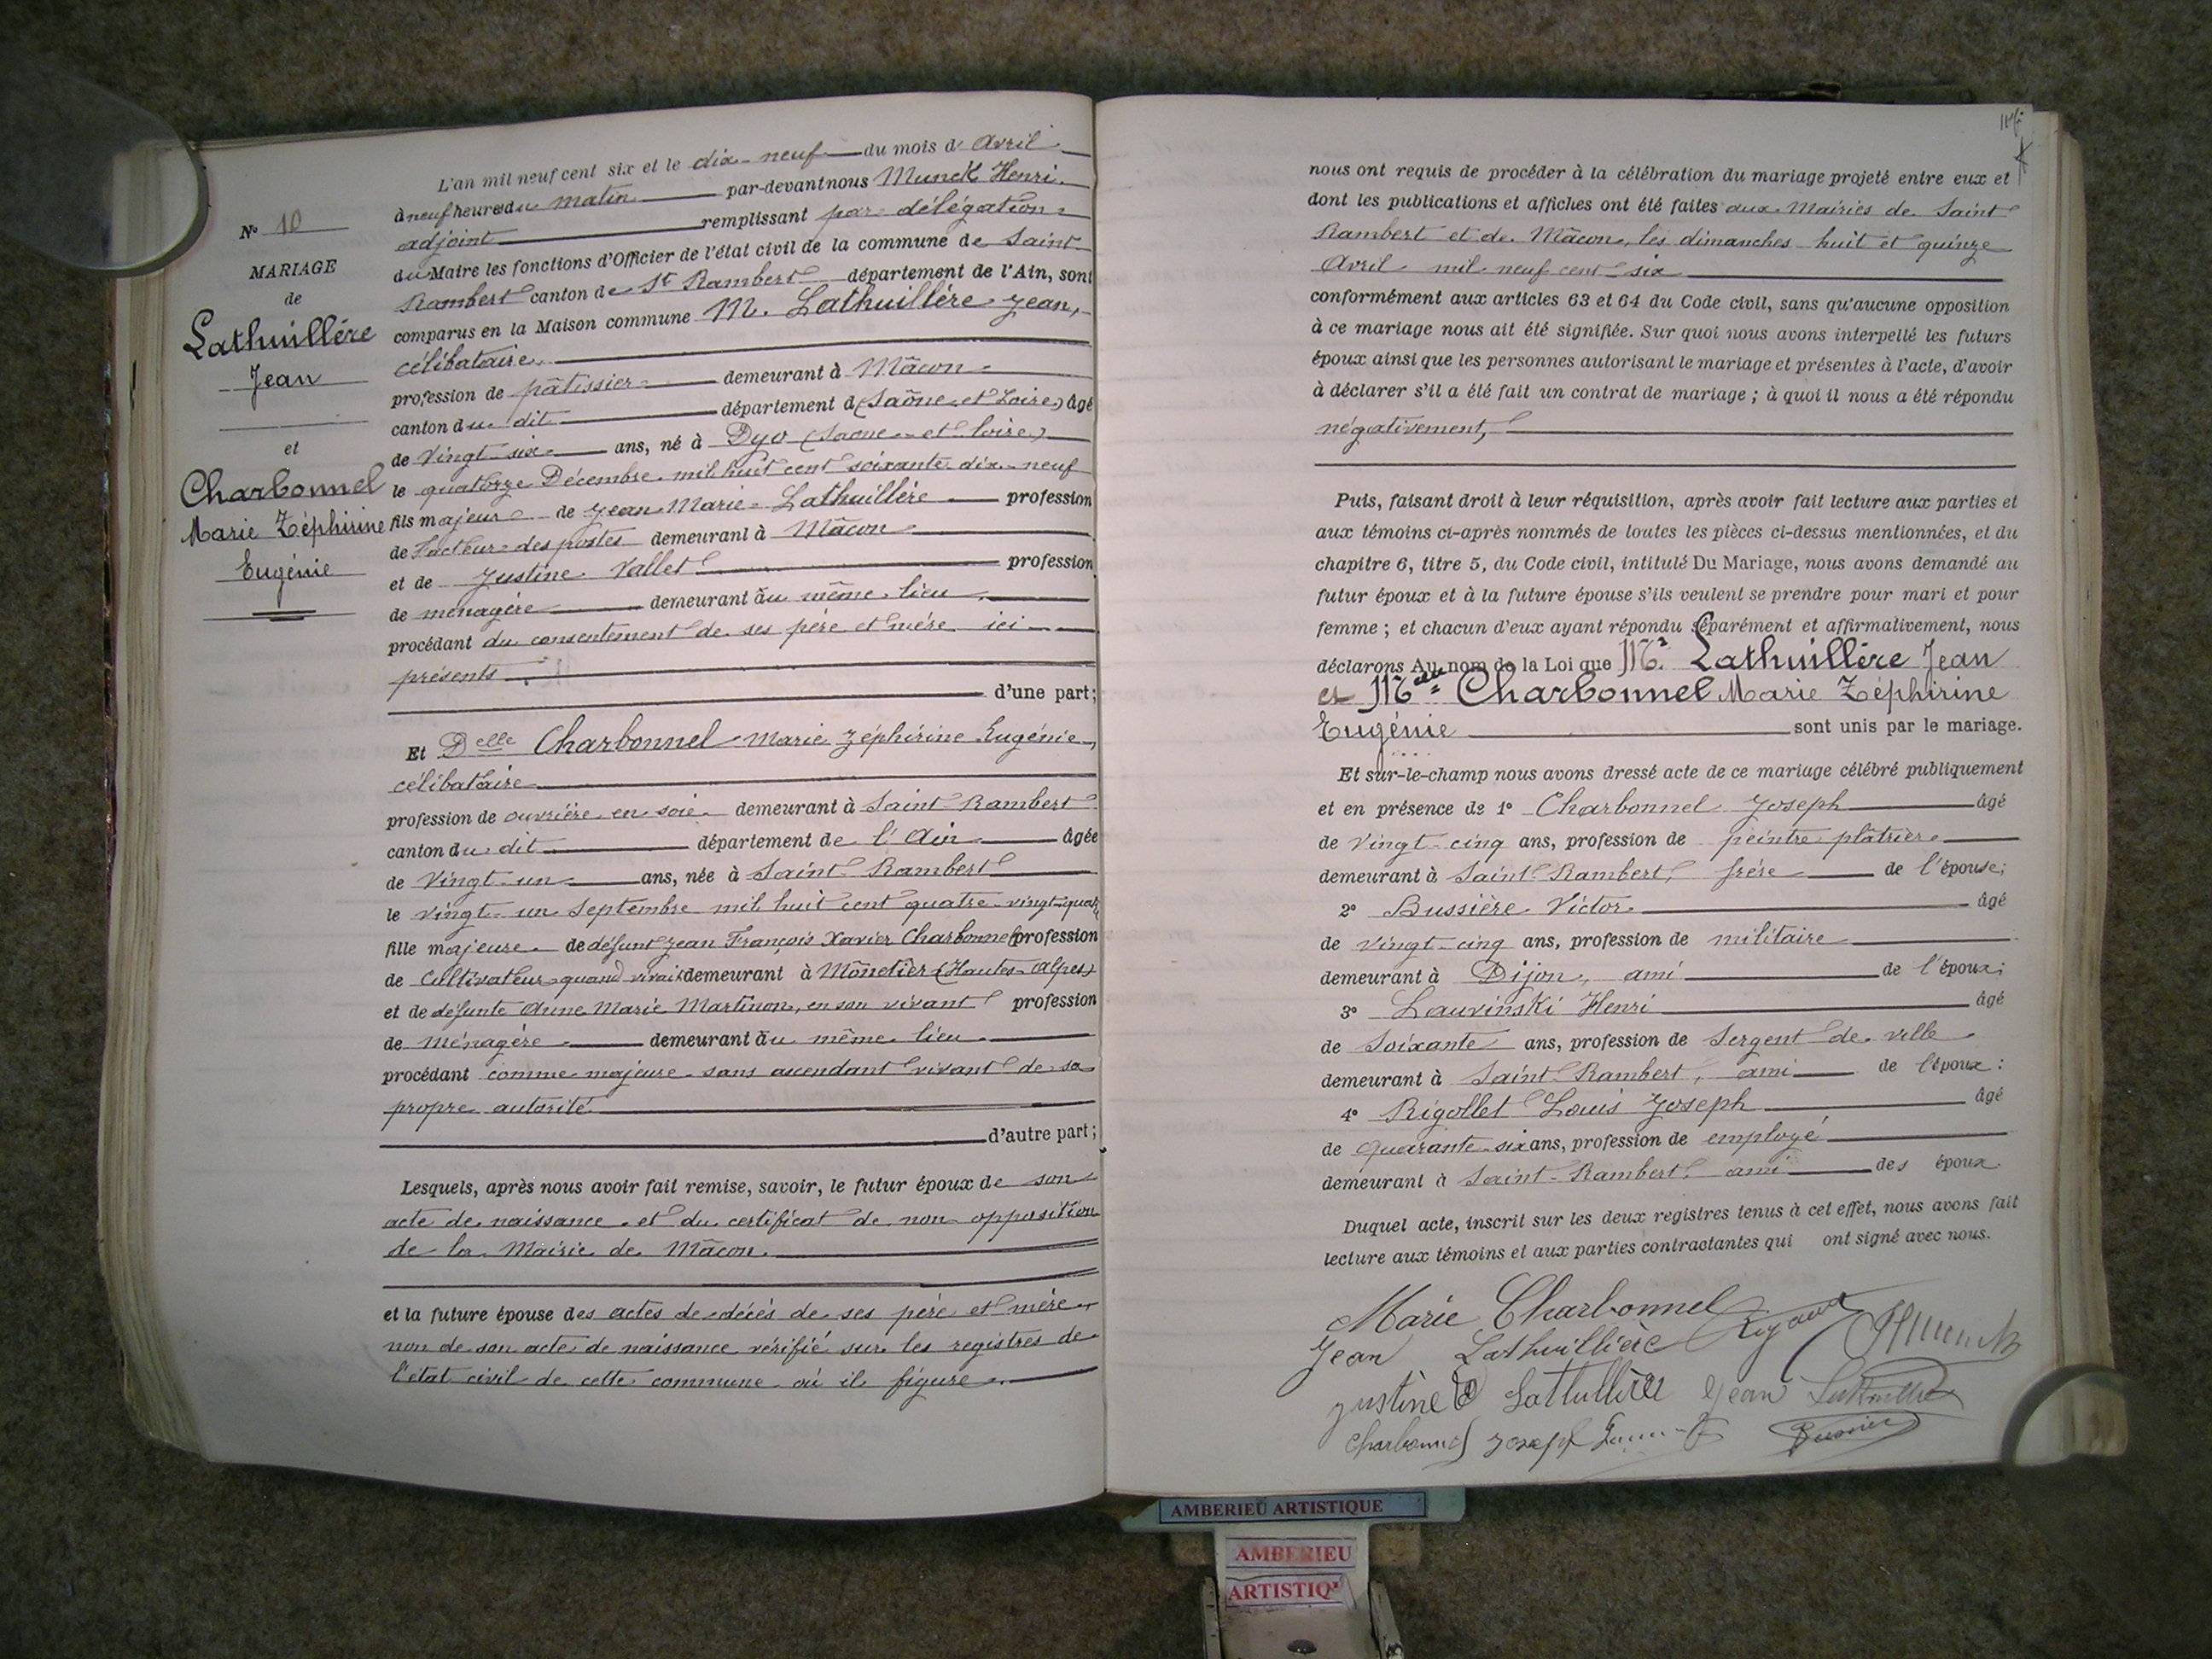 N° 10
MARIAGE
de
Lathuillére
Jean
et
Charbonnel
Marie Zéphirine
Eugénie
L'an mil neuf cent six et le dix-neuf du mois d'Avril
à neuf heures du matin par-devant nous Munck Henri
adjoint remplissant par délégation
du Maire les fonctions d'Officier de l'état civil de la commune de Saint
Rambert canton de St Rambert département de l'Ain, sont
comparus en la Maison commune M. Lathuillére Jean,
célibataire
profession de pâtissier demeurant à Mâcon
canton du dit département d (Saône et Loire) âgé
de Vingt-six ans, né à Dyo (Saone et loire)
le quatorze Décembre mil huit cent soixante dix-neuf
fils majeur de Jean Marie Lathuillére profession
de Facteur des postes demeurant à Mâcon
et de Justine Vallet profession
de ménagère demeurant au même lieu
procédant du consentement de ses père et mère ici
présents
d'une part;
Et Delle Charbonnel Marie Zéphirine Eugénie,
célibataire
profession de ouvrière en soie demeurant à Saint Rambert
canton du dit département de l'Ain âgée
de Vingt-un ans, née à Saint-Rambert
le vingt-un Septembre mil huit cent quatre-vingt-quatre
fille majeure de défunt Jean François Xavier Charbonnel profession
de Cultivateur quand vivait demeurant à Mônetier (Hautes-Alpes)
et de défunte Anne Marie Martinon, en son vivant profession
de Ménagère demeurant au même lieu
procédant comme majeure sans ascendant vivant de sa
propre autorité
d'autre part;
Lesquels, après nous avoir fait remise, savoir, le futur époux de son
acte de naissance et du certificat de non opposition
de la Mairie de Mâcon.
et la future épouse des actes de décès de ses père et mère,
non de son acte de naissance vérifié sur les registres de
l'état civil de cette commune où il figure
nous ont requis de procéder à la célébration du mariage projeté entre eux et
dont les publications et affiches ont été faites aux Mairies de Saint
Rambert et de Mâcon, les dimanches huit et quinze
Avril mil neuf cent six
conformément aux articles 63 et 64 du Code civil, sans qu'aucune opposition
à ce mariage nous ait été signifiée. Sur quoi nous avons interpellé les futurs
époux ainsi que les personnes autorisant le mariage et présentes à l'acte, d'avoir
à déclarer s'il a été fait un contrat de mariage; à quoi il nous a été répondu
négativement,
Puis, faisant droit à leur réquisition, après avoir fait lecture aux parties et
aux témoins ci-après nommés de toutes les pièces ci-dessus mentionnées, et du
chapitre 6, titre 5, du Code civil, intitulé Du Mariage, nous avons demandé au
futur époux et à la future épouse s'ils veulent se prendre pour mari et pour
femme; et chacun d'eux ayant répondu séparément et affirmativement, nous
déclarons Au nom de la Loi que Mr. Lathuillére Jean
et Melle Charbonnel Marie Zéphirine
Eugénie sont unis par le mariage.
Et sur-le-champ nous avons dressé acte de ce mariage célébré publiquement
et en présence de 1° Charbonnel Joseph âgé
de Vingt-cinq ans, profession de peintre plâtrier
demeurant à Saint-Rambert, frére de l'épouse;
2° Bussière Victor âgé
de vingt-cinq ans, profession de militaire
demeurant à Dijon, ami de l'époux;
3° Lauvinski Henri âgé
de Soixante ans, profession de Sergent de ville
demeurant à Saint-Rambert, ami de l'époux:
4° Rigollet Louis Joseph âgé
de quarante-six ans, profession de employé
demeurant à Saint-Rambert, ami des époux.
Duquel acte, inscrit sur les deux registres tenus à cet effet, nous avons fait
lecture aux témoins et aux parties contractantes qui ont signé avec nous.
Marie Charbonnel
Jean Lathuillière HMunck
Justine Lathullière Jean
Charbonnel Joseph Bussière
AMBERIEU ARTISTIQUE
AMBERIEU
ARTISTIQ